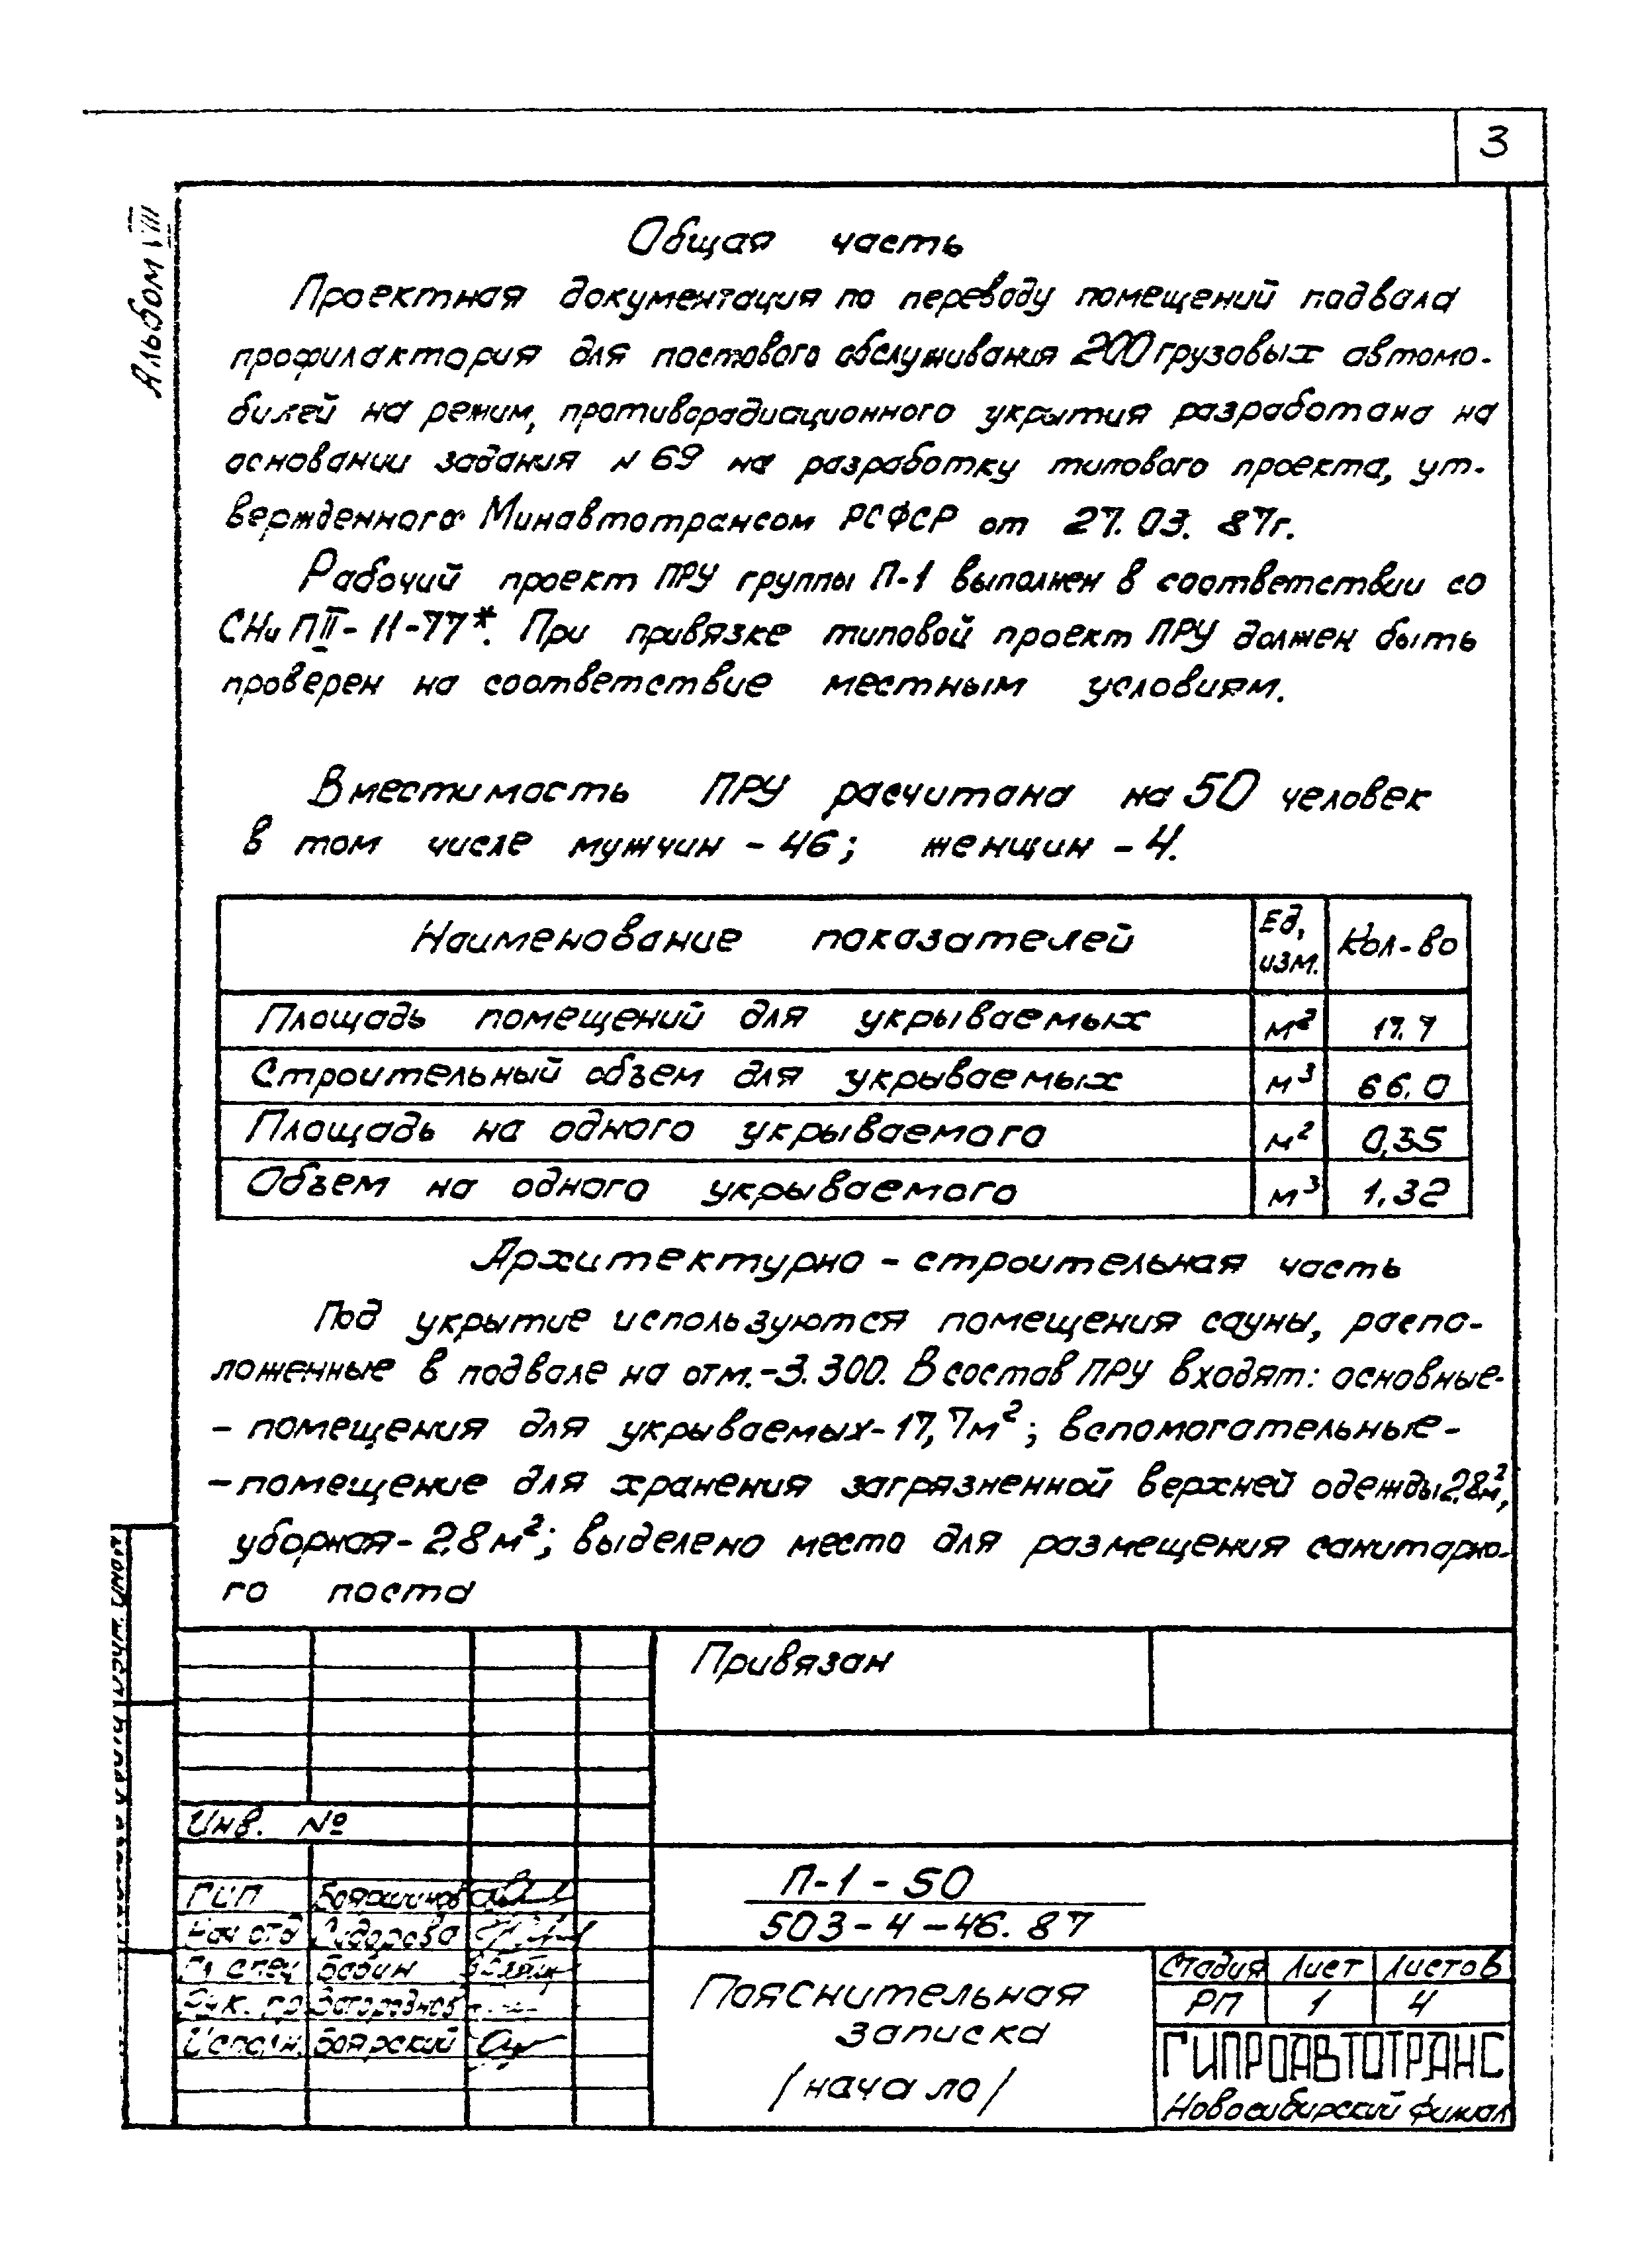 3
Альбом VIII
Общая часть
Проектная документация по переводу помещений подвала
профилактория для постового обслуживания 200 грузовых автомо-
билей на режим, противорадиационного укрытия разработана на
основании задания N 69 на разработку типового проекта, ут-
вержденного Минавтотрансом РСФСР от 27.03.87г.
Рабочий проект ПРУ группы П-1 выполнен в соответствии со
СНиП II-11-77*. При привязке типовой проект ПРУ должен быть
проверен на соответствие местным условиям.
Вместимость ПРУ расчитана на 50 человек
в том числе мужчин - 46; женщин - 4.
Наименование показателей Ед, изм. Кол-во
Площадь помещений для укрываемых м² 17.7
Строительный объем для укрываемых м³ 66.0
Площадь на одного укрываемого м² 0,35
Объем на одного укрываемого м³ 1,32
Архитектурно - строительная часть
Под укрытие используются помещения сауны, распо-
ложенные в подвале на отм.-3.300. В состав ПРУ входят: основные-
- помещения для укрываемых-17,7м²; вспомогательные-
-помещение для хранения загрязненной верхней одежды 2,8м²,
уборная- 2,8 м²; выделено место для размещения санитарно-
го поста
Привязан
Инв. №
П-1-50
503-4-46.87
ГИП
Нач отд Сидорова
Гл спец Бабин
Рук. гр
Исполн. Боярский
Пояснительная
записка
/начало/
Стадия Лист Листов
РП 1 4
ГИПРОАВТОТРАНС
Новосибирский филиал